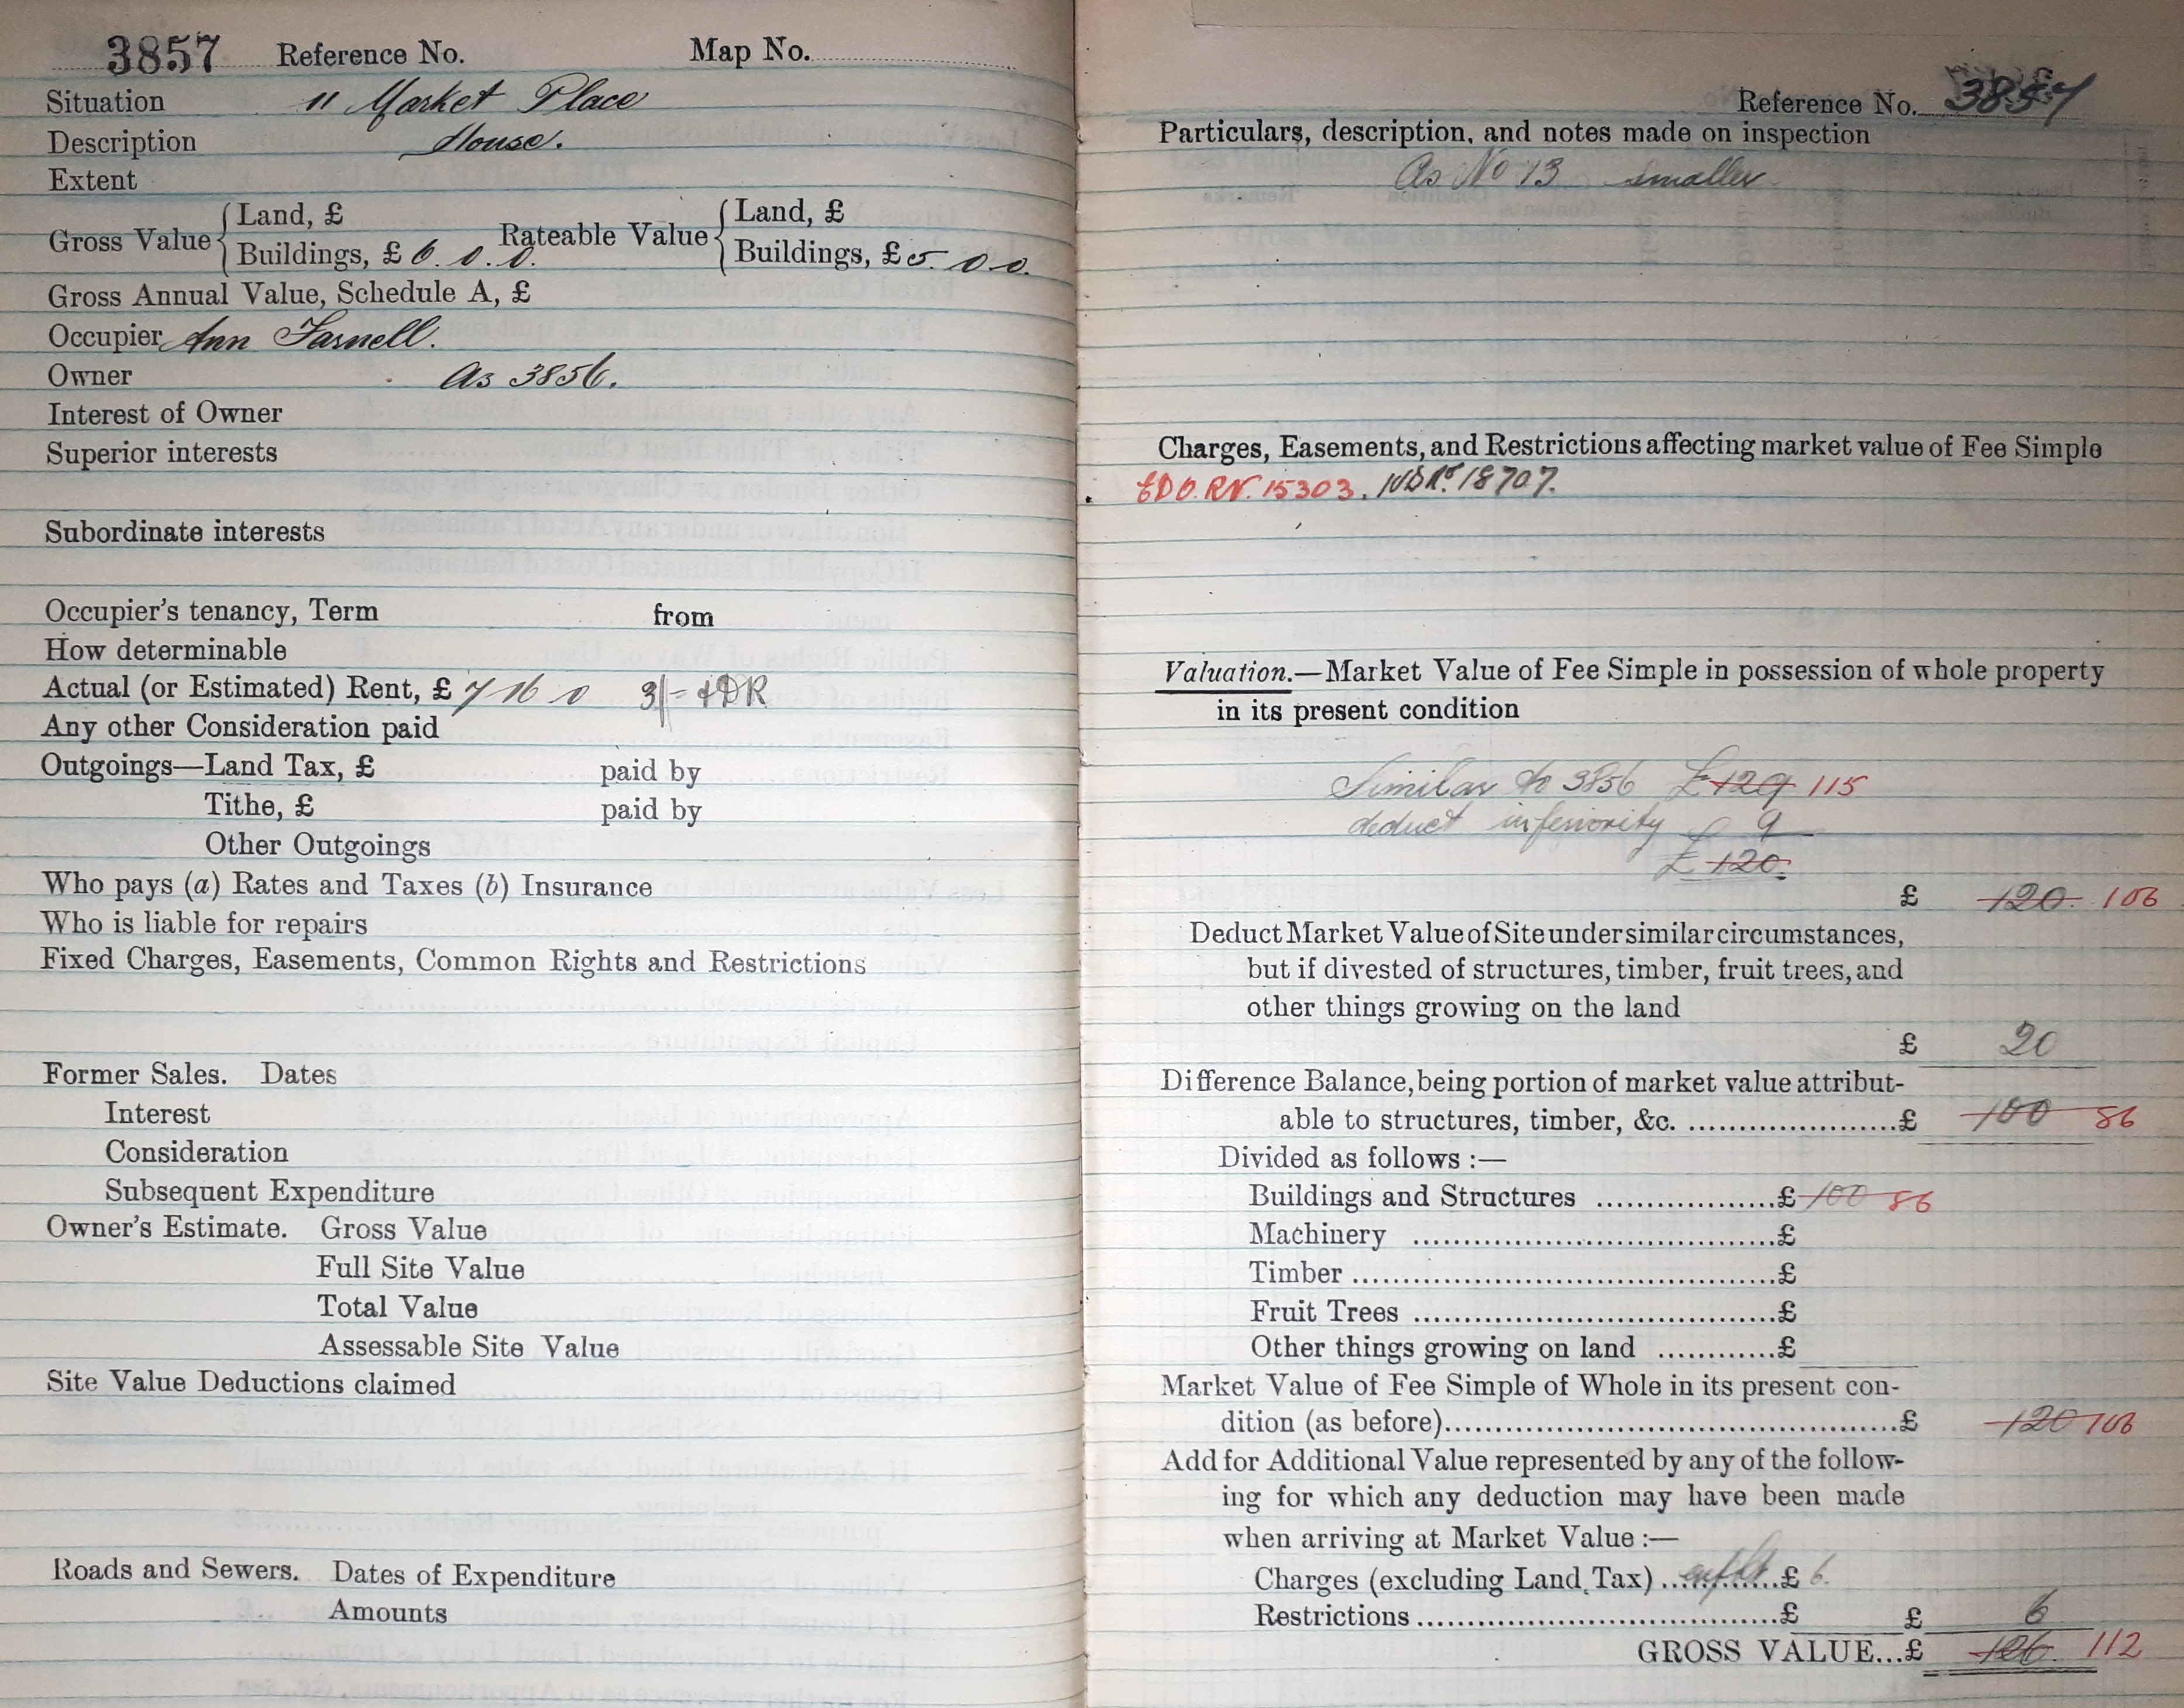 3857 Reference No. Map No.
Situation 11 Market Place
Description House.
Extent
Gross Value { Land, £
Buildings, £ 6. 0. 0. Rateable Value { Land, £
Buildings, £ 5. 0 0.
Gross Annual Value, Schedule A, £
Occupier Ann Farnell.
Owner As 3856.
Interest of Owner
Superior interests
Subordinate interests
Occupier's tenancy, Term from
How determinable
Actual (or Estimated) Rent, £ 7 16 0 3/- + DR
Any other Consideration paid
Outgoings—Land Tax, £ paid by
Tithe, £ paid by
Other Outgoings
Who pays (a) Rates and Taxes (b) Insurance
Who is liable for repairs
Fixed Charges, Easements, Common Rights and Restrictions
Former Sales. Dates
Interest
Consideration
Subsequent Expenditure
Owner's Estimate. Gross Value
Full Site Value
Total Value
Assessable Site Value
Site Value Deductions claimed
Roads and Sewers. Dates of Expenditure
Amounts
Reference No. 3857
Particulars, description, and notes made on inspection
As No 13 smaller
Charges, Easements, and Restrictions affecting market value of Fee Simple
RN. 15303. 18707.
Valuation.—Market Value of Fee Simple in possession of whole property
in its present condition
Similar to 3856 £ 129 115
deduct inferiority £ 9
£ 120.
£ 120. 106
Deduct Market Value of Site under similar circumstances,
but if divested of structures, timber, fruit trees, and
other things growing on the land
£ 20
Difference Balance, being portion of market value attribut-
able to structures, timber, &c. ....................£ 100 86
Divided as follows :—
Buildings and Structures ..................£ 100 86
Machinery ....................................£
Timber ..........................................£
Fruit Trees ....................................£
Other things growing on land ............£
Market Value of Fee Simple of Whole in its present con-
dition (as before)..............................................£ 120 106
Add for Additional Value represented by any of the follow-
ing for which any deduction may have been made
when arriving at Market Value :—
Charges (excluding Land Tax) ............£ 6.
Restrictions ......................................£ £ 6
GROSS VALUE...£ 126. 112